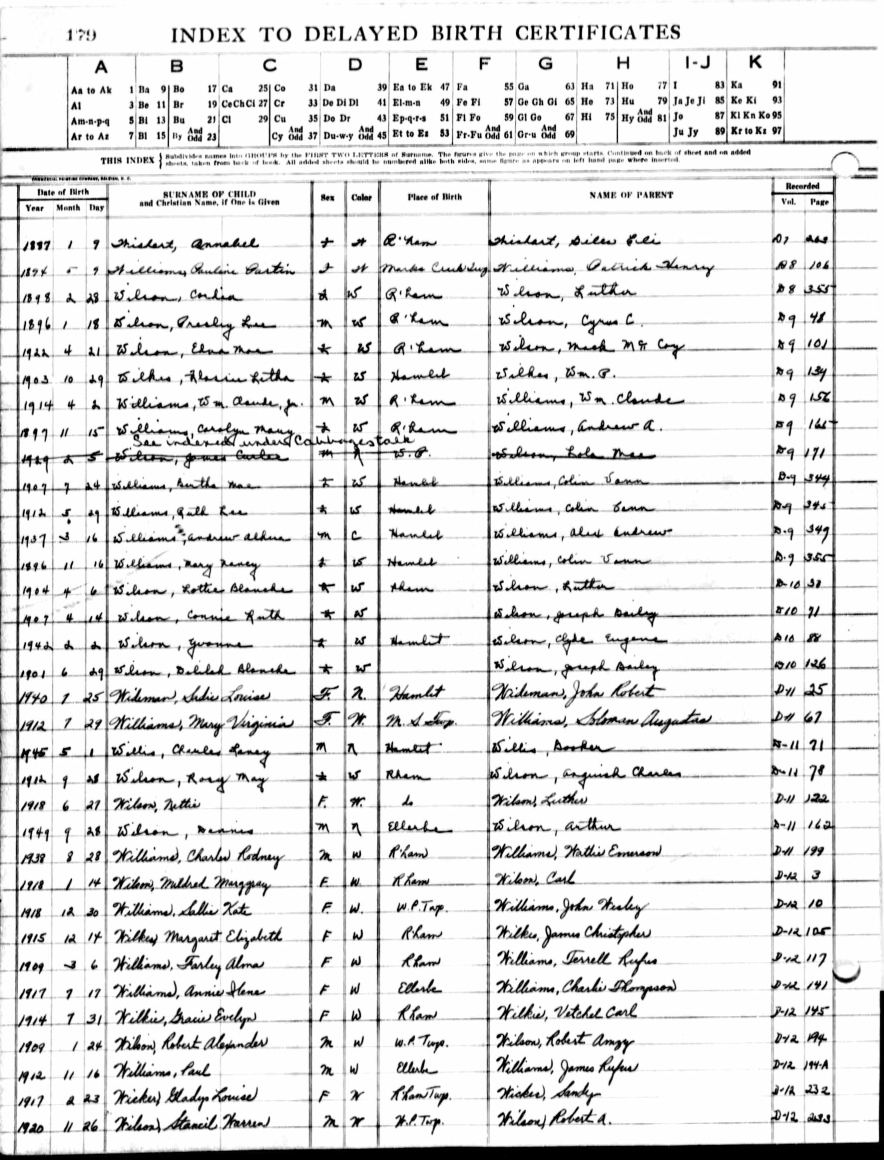 179 INDEX TO DELAYED BIRTH CERTIFICATES
A B C D E F G H I-J K
Aa to Ak 1 Ba 9 Bo 17 Ca 25 Co 31 Da 39 Ea to Ek 47 Fa 55 Ga 63 Ha 71 Ho 77 I 83 Ka 91
Al 3 Be 11 Br 19 Ce Ch Ci 27 Cr 33 De Di Dl 41 El-m-n 49 Fe Fi 57 Ge Gh Gi 65 He 73 Hu 79 Ja Je Ji 85 Ke Ki 93
Am-n-p-q 5 Bi 13 Bu 21 Cl 29 Cu 35 Do Dr 43 Ep-q-r-s 51 Fl Fo 59 Gl Go 67 Hi 75 Hy And Odd 81 Jo 87 Kl Kn Ko 95
Ar to Az 7 Bl 15 By And Odd 23 Cy And Odd 37 Du-w-y 45 Et to Ez 53 Fr-Fu And Odd 61 Gr-u And Odd 69 Ju Jy 89 Kr to Kz 97
THIS INDEX { Subdivides names into GROUPS by the FIRST TWO LETTERS of Surname. The figures give the page on which group starts. Continued on back of sheet and on added
sheets, taken from back of book. All added sheets should be numbered alike both sides, same figure as appears on left hand page where inserted.
Date of Birth SURNAME OF CHILD Sex Color Place of Birth NAME OF PARENT Recorded
Year Month Day and Christian Name, if One is Given Vol. Page
1887 1 9 Annabel R'ham D7
1874 5 7 Williams, Pauline Partin W Marks Creek Williams, Patrick Henry D8 106
1898 2 28 Wilson, W R'ham Wilson, Luther D8 355
1896 1 18 Wilson, Presley Lee M W R'ham Wilson, Cyrus C. D9 48
1922 4 21 Wilson, Edna Mae W R'ham Wilson, Mack McCoy D9 101
1903 10 29 Wilkes, W Hamlet Wilkes, Wm. P. D9 134
1914 4 2 Williams, Wm. Claude, Jr. M W R'ham Williams, Wm. Claude D9 156
1897 11 15 Williams, Carolyn Mary W R'ham Williams, Andrew A. D9
See indexed under Cabbagestalk
1929 2 5 Wilson, James Curlee M N W.P. Wilson, Lola Mae D9 171
1907 7 24 Williams, Bertha Mae F W Hamlet Williams, Colin Vann D-9 344
1912 5 29 Williams, Ruth Lee W Hamlet Williams, Colin Vann D-9 345
1937 3 16 Williams, Andrew M C Hamlet Williams, Alex Andrew D-9 349
1896 11 16 Williams, Mary Nancy W Hamlet Williams, Colin Vann D-9 355
1904 4 6 Wilson, Lottie Blanche W Rham Wilson, Luther D-10 38
1907 4 14 Wilson, Connie Ruth W Wilson, Joseph Bailey D10 71
1942 2 2 Wilson, Yvonne W Hamlet Wilson, Clyde Eugene D10 88
1901 6 29 Wilson, Delilah Blanche W Wilson, Joseph Bailey D10 126
1940 7 25 Wideman, Louise F. N. Hamlet Wideman, John Robert D-11 25
1912 7 29 Williams, Mary Virginia F. W. M. S Twp. Williams, Soloman Augustus D-11 67
1945 5 1 Willis, Charles Laney M N Hamlet Willis, Booker D-11 71
1912 9 28 Wilson, Rosy May W Rham Wilson, Anguish Charles D-11 78
1918 6 27 Wilson, Nettie F. W. do Wilson, Luther D-11 122
1949 9 28 Wilson, Dennis M N Ellerbe Wilson, Arthur D-11 162
1938 8 28 Williams, Charles Rodney M W Rham Williams, Wattie Emerson D-11 199
1918 1 14 Wilson, Mildred F W Rham Wilson, Carl D-12 3
1918 12 30 Williams, Sallie Kate F. W. W.P. Twp. Williams, John Wesley D-12 10
1915 12 14 Wilkes, Margaret Elizabeth F W Rham Wilkes, James Christopher D-12 105
1909 3 6 Williams, Farley Alma F W Rham Williams, Terrell Rufus D-12 117
1917 7 17 Williams, Annie Ilene F W Ellerbe Williams, Charlie Thompson D-12 141
1914 7 31 Wilkie, Gracie Evelyn F W Rham Wilkie, Vetchel Carl D-12 145
1909 1 24 Wilson, Robert Alexander M W W.P. Twp. Wilson, Robert Amzy D-12 194
1912 11 16 Williams, Paul M W Ellerbe Williams, James Rufus D-12 194-A
1917 2 23 Wicker, Gladys Louise F W Rham Twp. Wicker, Sandy D-12 232
1920 11 26 Wilson, Stancil Warren M W W.P. Twp. Wilson, Robert A. D-12 233